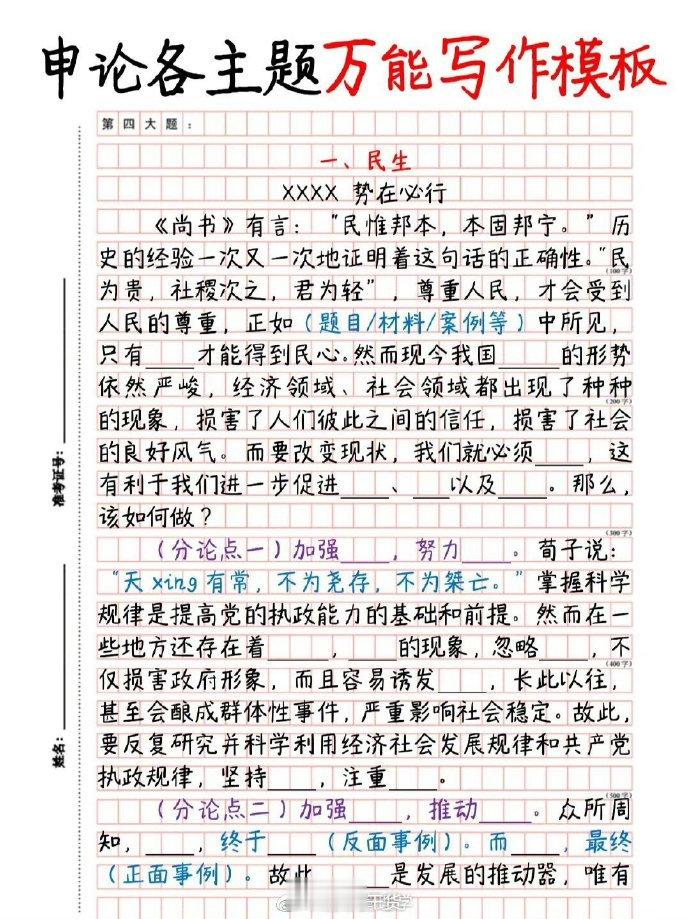 申论各主题万能写作模板
第四大题：
一、民生
XXXX 势在必行
《尚书》有言：“民惟邦本，本固邦宁。”历
史的经验一次又一次地证明着这句话的正确性。“民
(100字)
为贵，社稷次之，君为轻”，尊重人民，才会受到
人民的尊重，正如（题目/材料/案例等）中所见，
只有____才能得到民心。然而现今我国_____的形势
依然严峻，经济领域、社会领域都出现了种种
(200字)
的现象，损害了人们彼此之间的信任，损害了社会
的良好风气。而要改变现状，我们就必须____，这
有利于我们进一步促进____、___以及____。那么，
该如何做？
(300字)
（分论点一）加强____，努力____。荀子说：
“天xing有常，不为尧存，不为桀亡。”掌握科学
规律是提高党的执政能力的基础和前提。然而在一
些地方还存在着_____，_____的现象，忽略____，不
(400字)
仅损害政府形象，而且容易诱发____，长此以往，
甚至会酿成群体性事件，严重影响社会稳定。故此，
要反复研究并科学利用经济社会发展规律和共产党
执政规律，坚持____，注重____。
(500字)
（分论点二）加强_____，推动_____。众所周
知，____，终于____（反面事例）。而____，最终
（正面事例）。故此_______是发展的推动器，唯有
准考证号：
姓名：